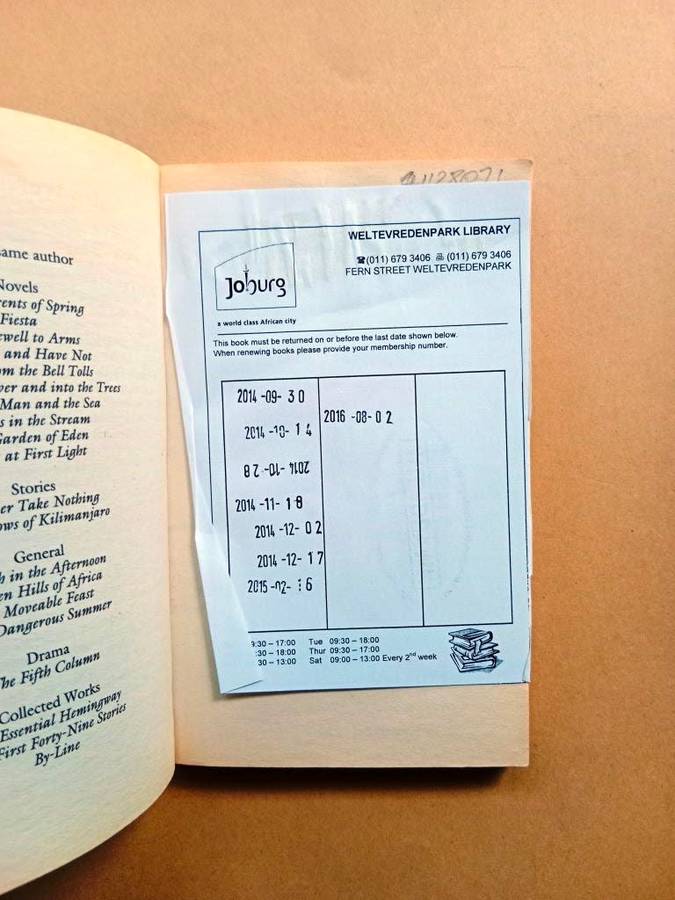 ame author
Novels
ents of Spring
Fiesta
ewell to Arms
and Have Not
om the Bell Tolls
ver and into the Trees
Man and the Sea
s in the Stream
arden of Eden
at First Light
Stories
er Take Nothing
ows of Kilimanjaro
General
h in the Afternoon
en Hills of Africa
Moveable Feast
Dangerous Summer
Drama
he Fifth Column
Collected Works
Essential Hemingway
First Forty-Nine Stories
By-Line
WELTEVREDENPARK LIBRARY
☎(011) 679 3406 (011) 679 3406
FERN STREET WELTEVREDENPARK
Joburg
a world class African city
This book must be returned on or before the last date shown below.
When renewing books please provide your membership number.
2014 -09- 30
2014 -10- 14
2014 -10- 28
2014 -11- 18
2014 -12- 02
2014 -12- 17
2015 -02- 16
2016 -08- 02
9:30 – 17:00 Tue 09:30 – 18:00
:30 – 18:00 Thur 09:30 – 17:00
30 – 13:00 Sat 09:00 – 13:00 Every 2nd week